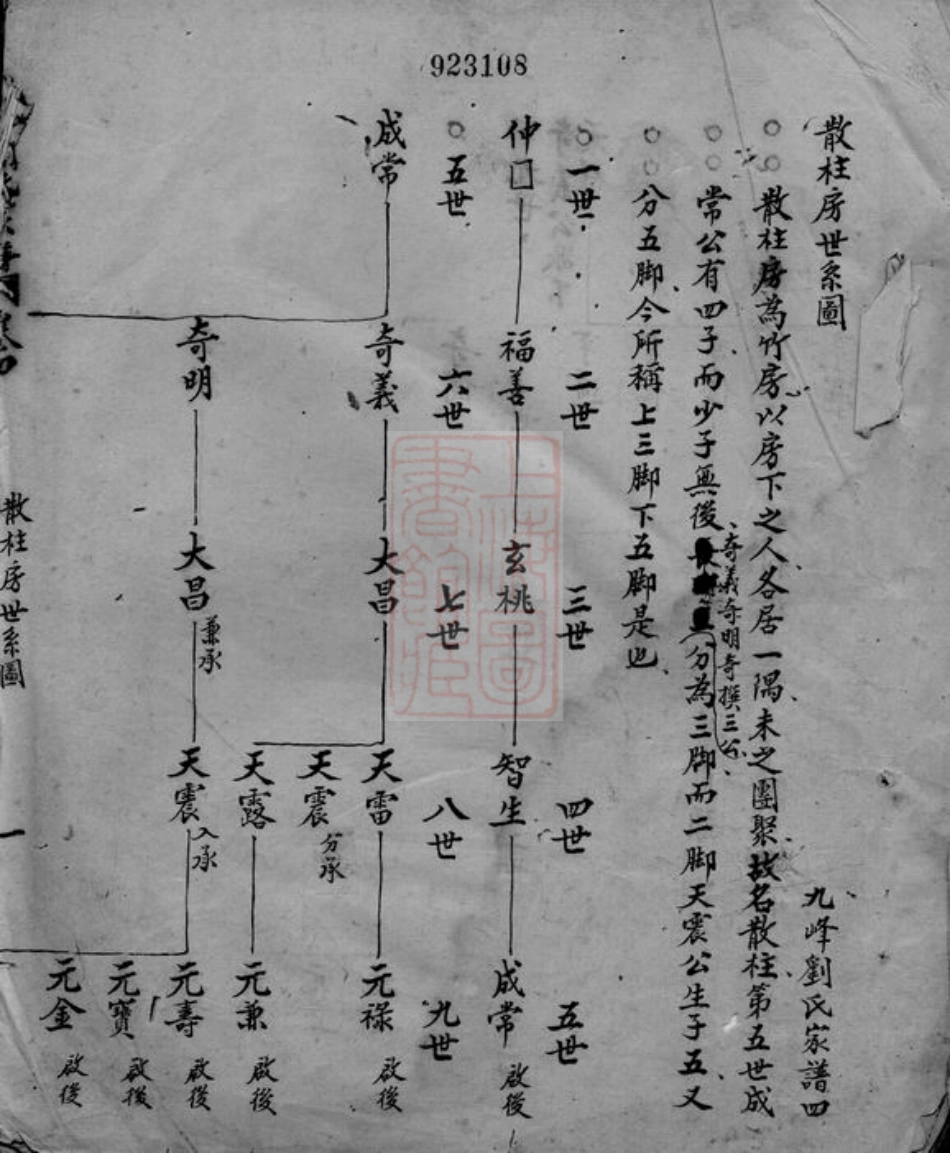 923108
散柱房世系圖
九峰劉氏家譜四
散柱房為竹房以房下之人各居一隅未之團聚故名散柱第五世成
常公有四子而少子無後
奇義奇明奇撰三公
分為三脚而二脚天震公生子五又
分五脚今所稱上三脚下五脚是也
一世 二世 三世 四世 五世
仲□ 福善 玄桃 智生 成常 啟後
五世 六世 七世 八世 九世
成常 奇義 大昌 天雷 元祿 啟後
天震 分承
天露 元兼 啟後
奇明 大昌 兼承 天震 入承 元壽 啟後
元寶 啟後
元金 啟後
散柱房世系圖
一